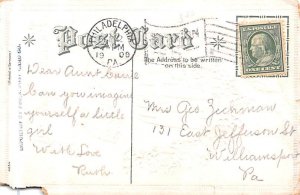 Post Card
PHILADELPHIA
PM
1909
PA
The Address to be written
on this side.
U.S. POSTAGE
ONE CENT
Dear Aunt
Can you imagine
yourself a little
girl
With Love
Ruth
Mrs Geo Zechman
131 East Jefferson St
Williamsport
Pa